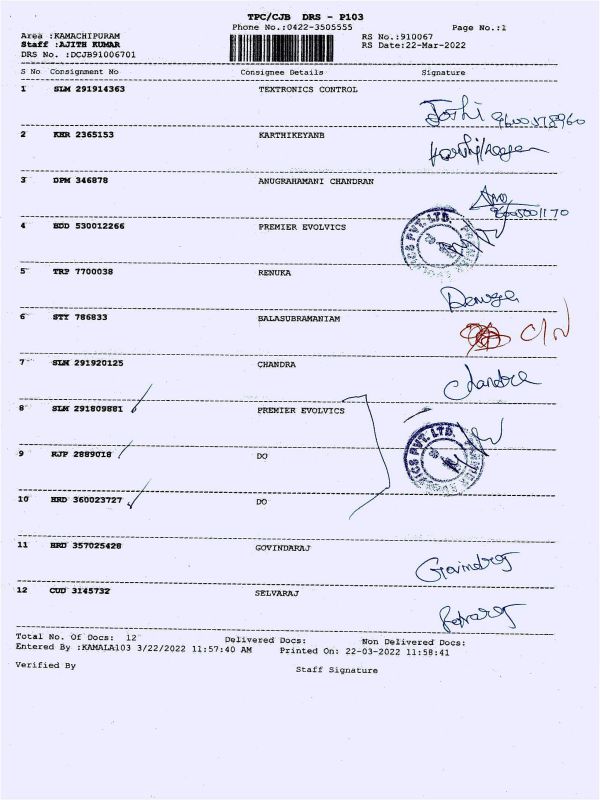 TPC/CJB DRS - P103
Phone No.:0422-3505555 Page No.:1
Area :KAMACHIPURAM RS No.:910067
Staff :AJITH KUMAR RS Date:22-Mar-2022
DRS No. :DCJB91006701
S No Consignment No Consignee Details Signature
1 SLM 291914363 TEXTRONICS CONTROL
Joshi 9600578960
2 KHR 2365153 KARTHIKEYANB
3 DPM 346878 ANUGRAHAMANI CHANDRAN
4 BDD 530012266 PREMIER EVOLVICS
5 TRP 7700038 RENUKA
Renuga
6 STY 786833 BALASUBRAMANIAM
C/N
7 SLM 291920125 CHANDRA
Chandra
8 SLM 291809881 PREMIER EVOLVICS
9 RJP 2889018 DO
10 HRD 360023727 DO
11 HRD 357025428 GOVINDARAJ
Govindraj
12 CUD 3145732 SELVARAJ
Total No. Of Docs: 12 Delivered Docs: Non Delivered Docs:
Entered By :KAMALA103 3/22/2022 11:57:40 AM Printed On: 22-03-2022 11:58:41
Verified By Staff Signature